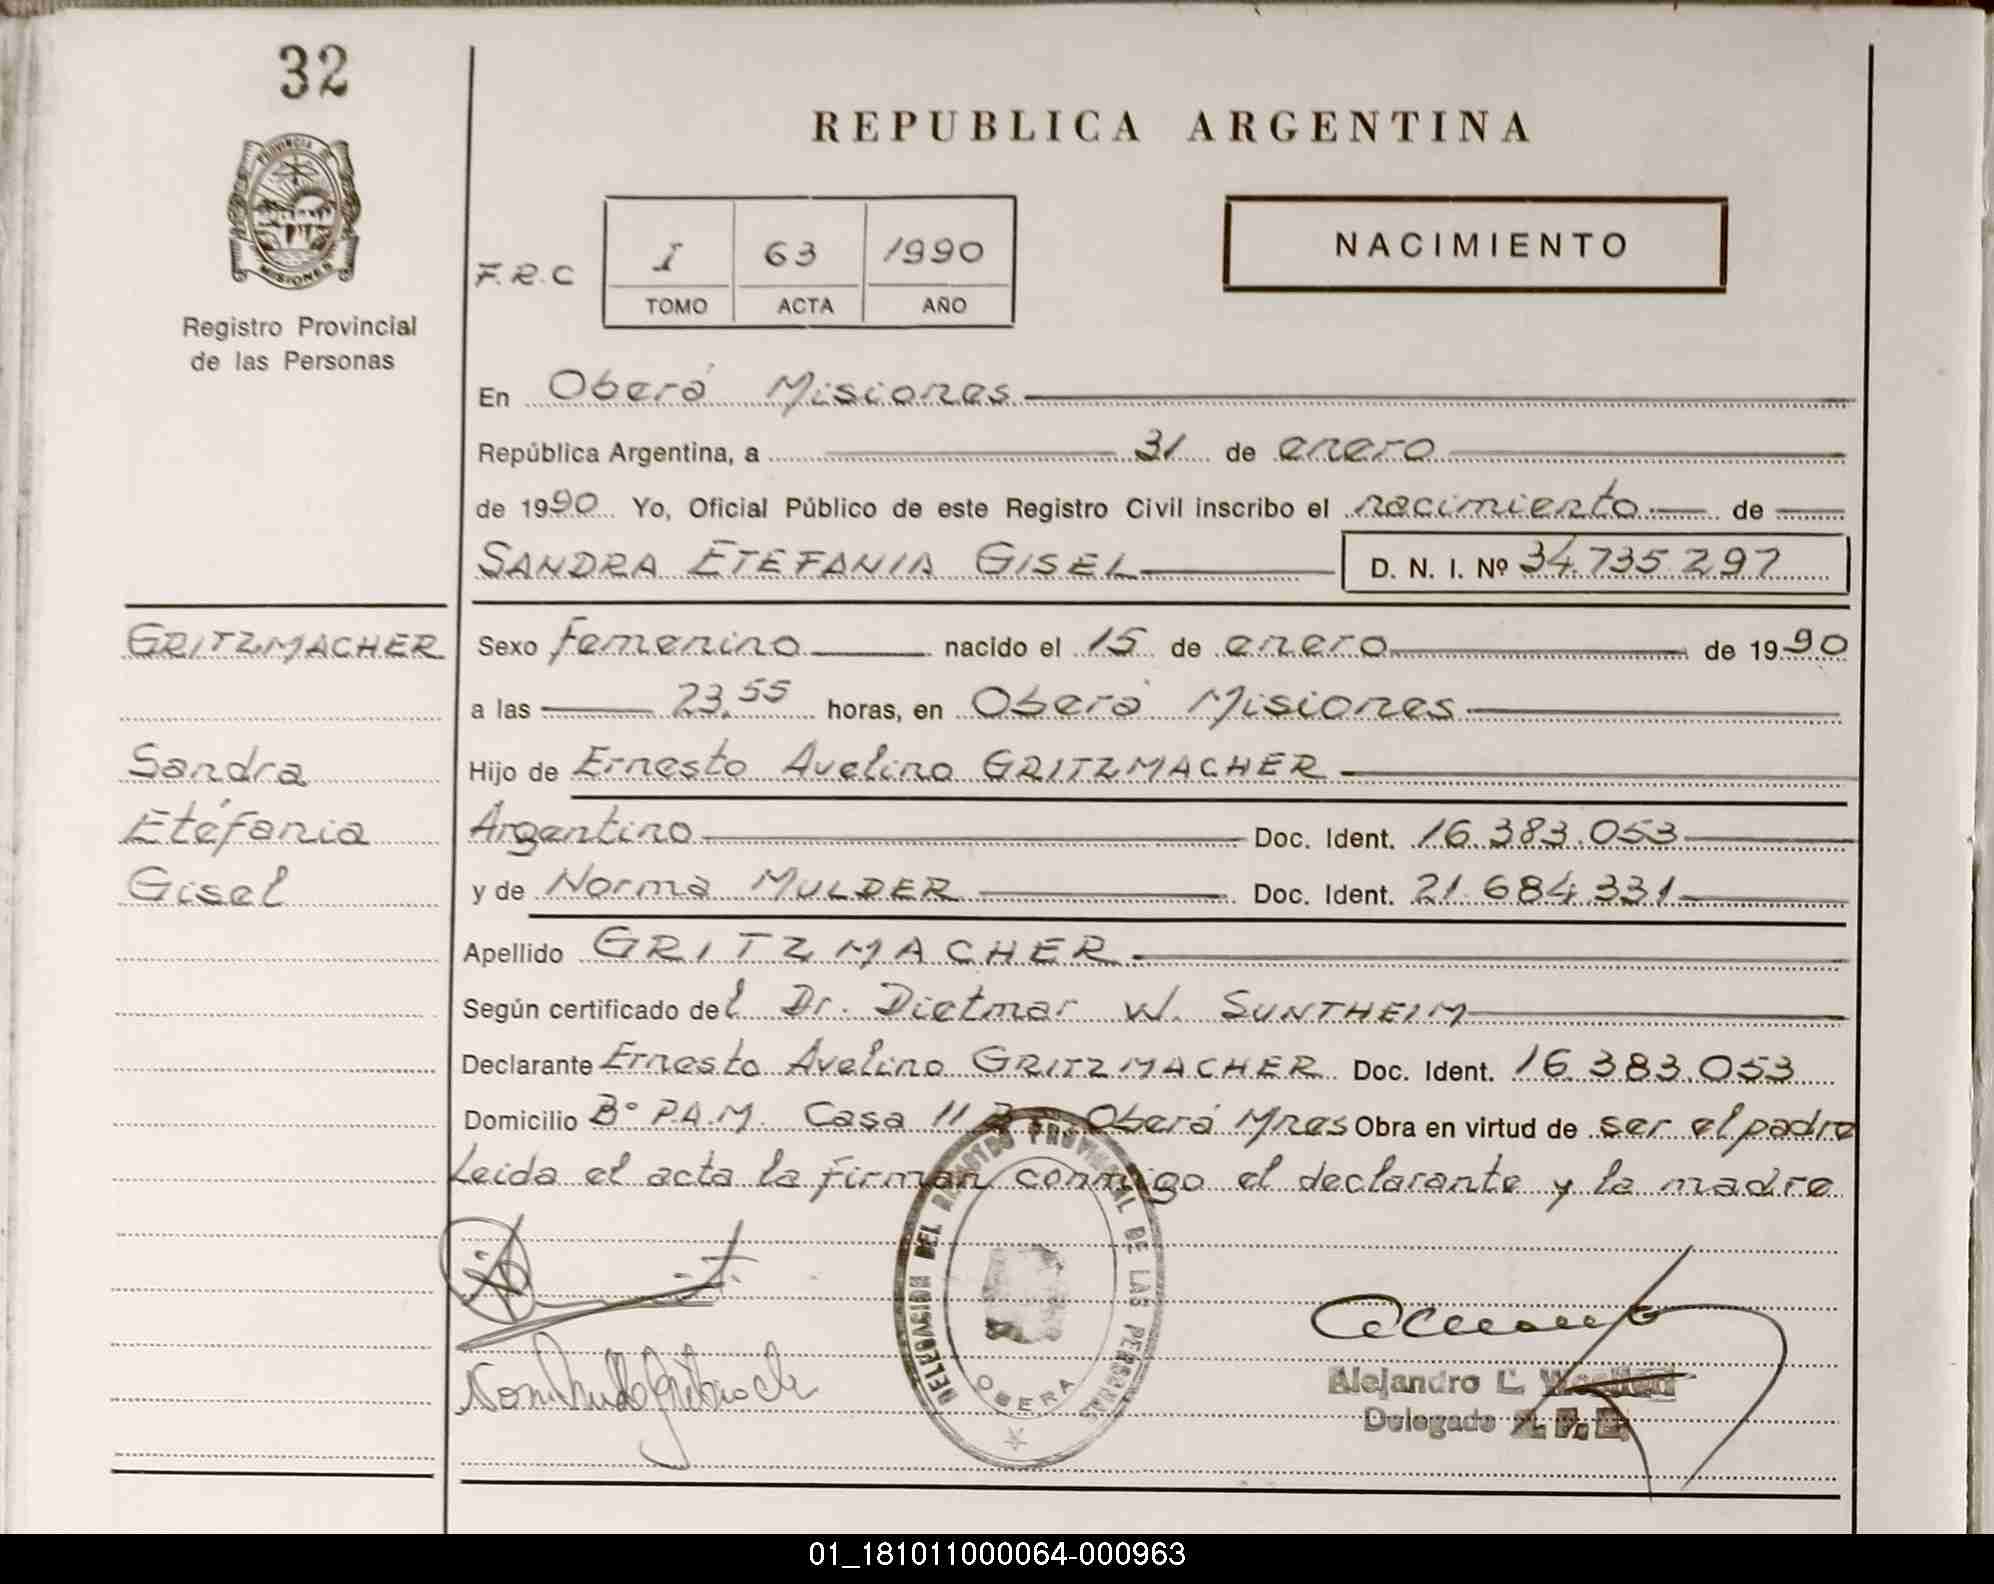 32
PROVINCIA DE
MISIONES
Registro Provincial
de las Personas
REPUBLICA ARGENTINA
F.R.C
I 63 1990
TOMO ACTA AÑO
NACIMIENTO
En Oberá Misiones
República Argentina, a 31 de enero
de 1990 Yo, Oficial Público de este Registro Civil inscribo el nacimiento de
SANDRA ETEFANIA GISEL D. N. I. Nº 34.735.297
GRITZMACHER
Sandra
Etéfania
Gisel
Sexo femenino nacido el 15 de enero de 1990
a las 23.55 horas, en Oberá Misiones
Hijo de Ernesto Avelino GRITZMACHER
Argentino Doc. Ident. 16.383.053
y de Norma MULDER Doc. Ident. 21.684.331
Apellido GRITZMACHER
Según certificado del Dr. Dietmar W. SUNTHEIM
Declarante Ernesto Avelino GRITZMACHER Doc. Ident. 16.383.053
Domicilio Bº P.A.M. Casa 11 Oberá Mnes Obra en virtud de ser el padre
Leida el acta la firman conmigo el declarante y la madre
DELEGACION DEL REGISTRO PROVINCIAL DE LAS PERSONAS
OBERA
Alejandro L.
Delegado
01_181011000064-000963